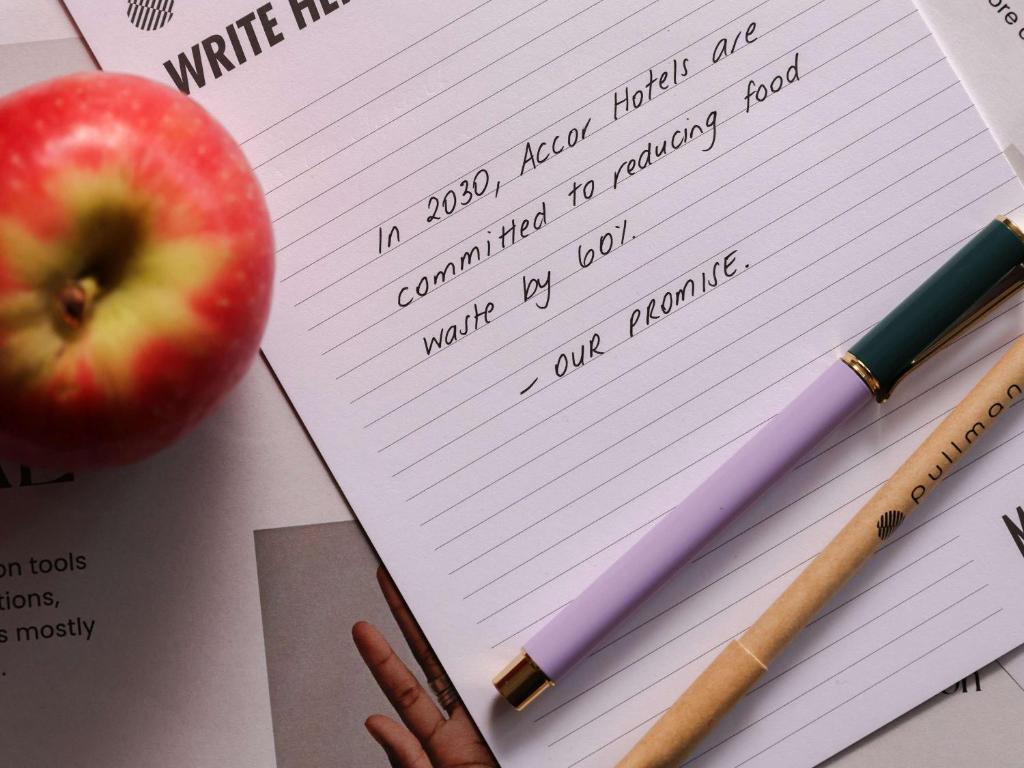 WRITE
In 2030, Accor Hotels are
committed to reducing food
waste by 60%.
– OUR PROMISE.
pullman
on tools
tions,
s mostly
.
ore